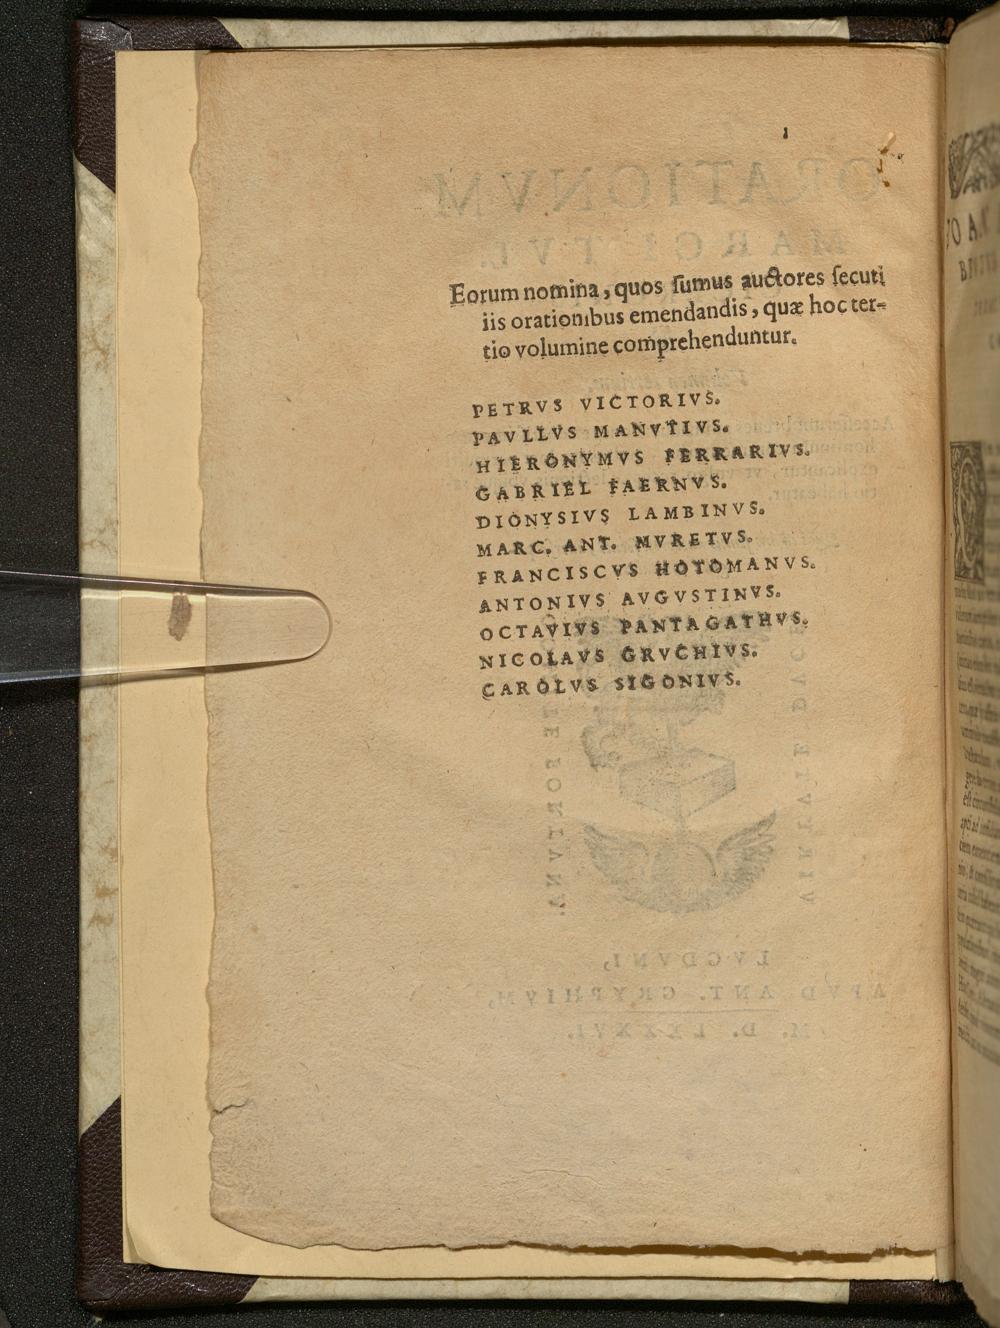 Eorum nomina, quos ſumus auctores ſecuti
iis orationibus emendandis, quæ hoc ter-
tio volumine comprehenduntur.
PETRVS VICTORIVS.
PAVLLVS MANVTIVS.
HIERONYMVS FERRARIVS.
GABRIEL FAERNVS.
DIONYSIVS LAMBINVS.
MARC. ANT. MVRETVS.
FRANCISCVS HOTOMANVS.
ANTONIVS AVGVSTINVS.
OCTAVIVS PANTAGATHVS.
NICOLAVS GRVCHIVS.
CAROLVS SIGONIVS.